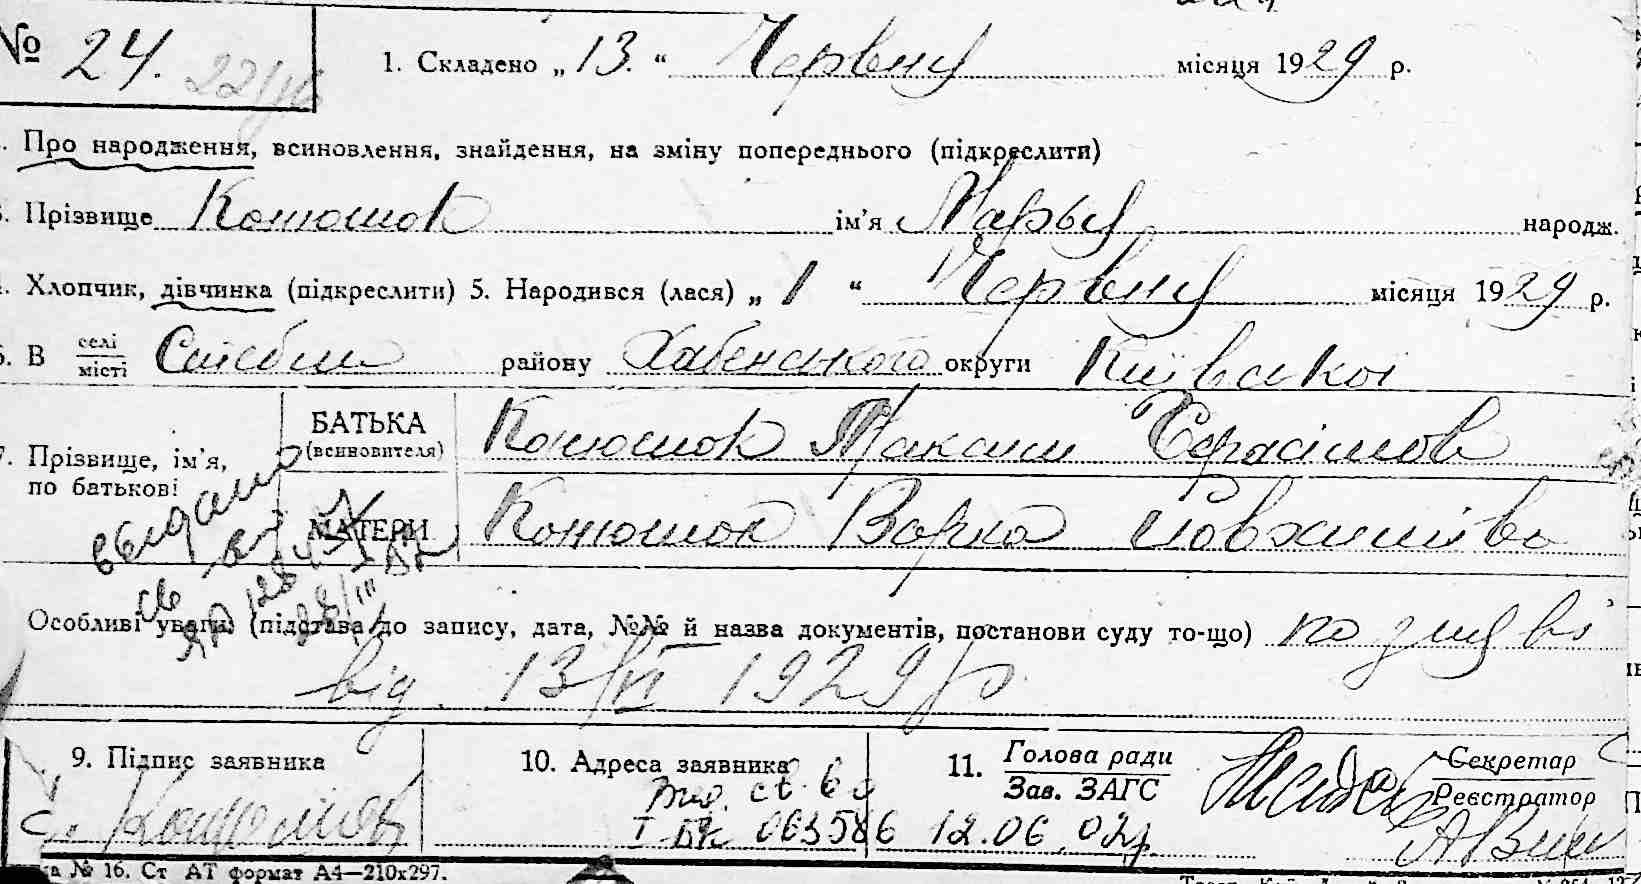 № 24. 1. Складено „ 13. “ Червня місяця 1929 р.
Про народження, всиновлення, знайдення, на зміну попереднього (підкреслити)
Прізвище Конюшок ім’я Марья народж.
Хлопчик, дівчинка (підкреслити) 5. Народився (лася) „ 1 “ Червня місяця 1929 р.
6. В селі місті району Хабенського округи Київської
7. Прізвище, ім’я, по батькові
БАТЬКА (всиновителя) Конюшок Максим Герасімов
МАТЕРИ Конюшок Варка
выдано
Особливі уваги (підстава до запису, дата, №№ й назва документів, постанови суду то-що) по заяві
від 13/VI 1929 р
9. Підпис заявника 10. Адреса заявника 11. Голова ради Зав. ЗАГС Секретар Реєстратор
св.
I БК 063586 12.06.02р.
№ 16. Ст АТ формат А4—210х297.